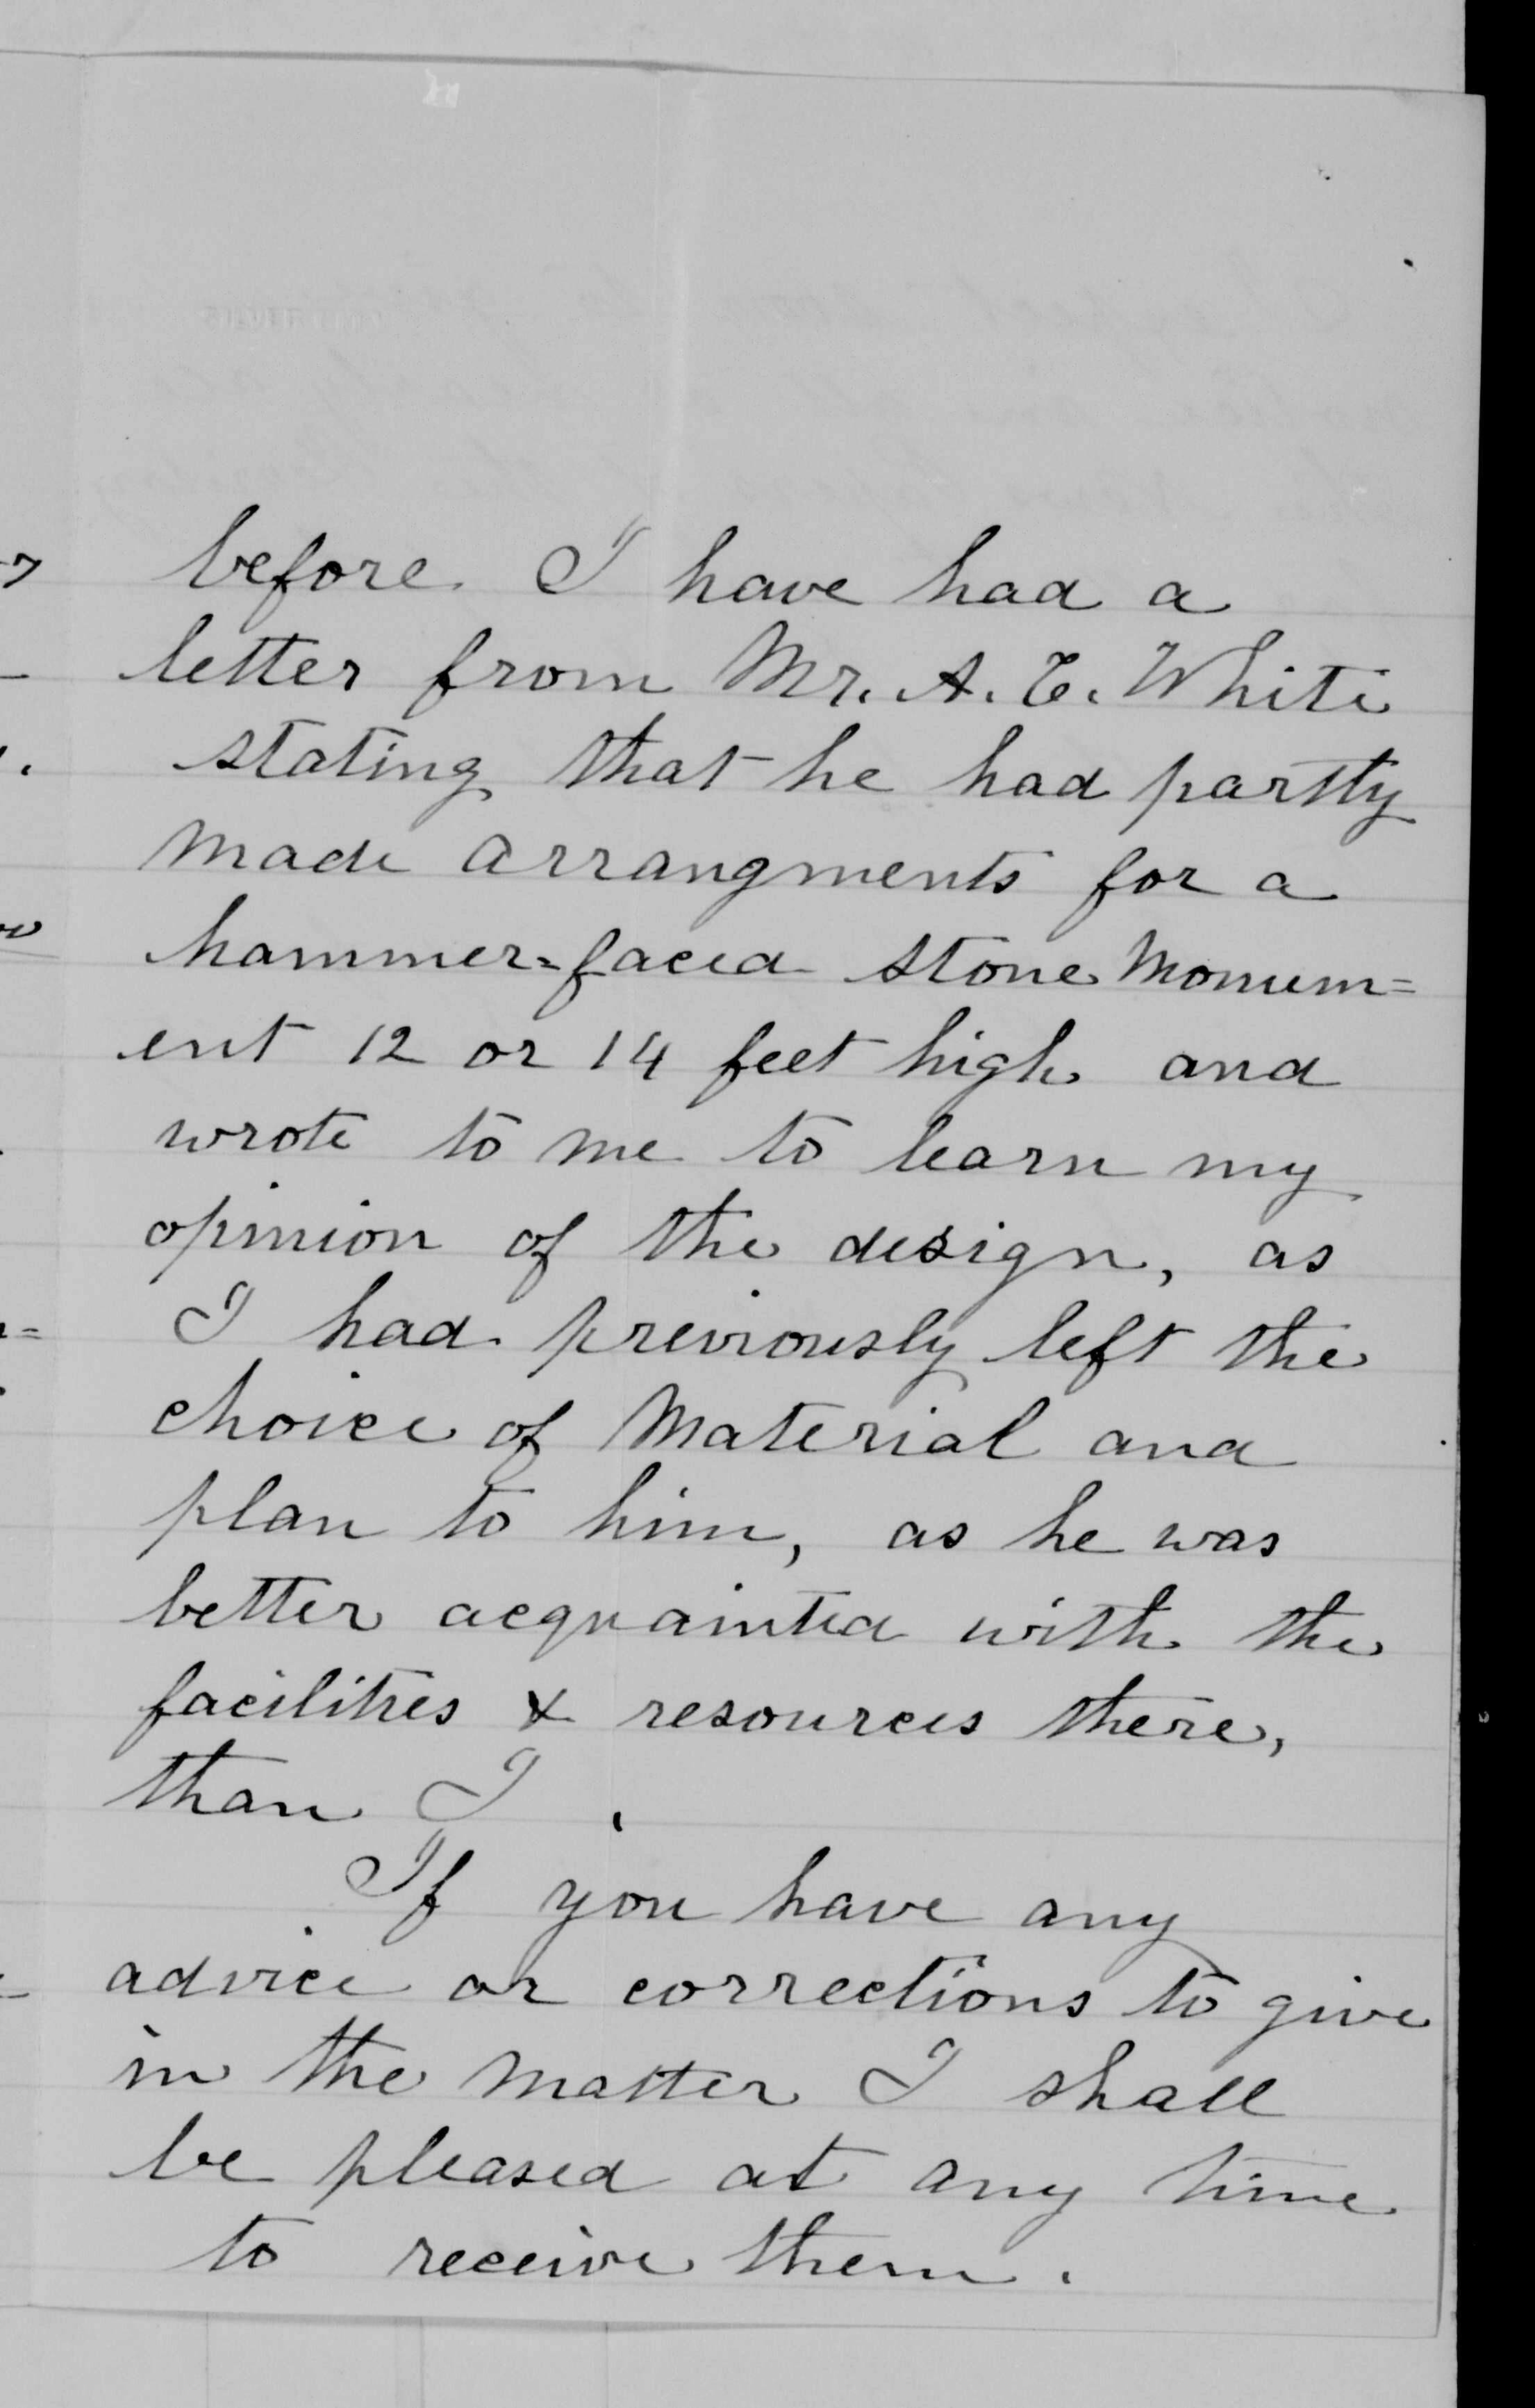 before. I have had a
letter from Mr. A. E. White
stating that he had partly
made arrangments for a
hammer=faced stone Monum=
ent 12 or 14 feet high and
wrote to me to learn my
opinion of the design, as
I had previously left the
choice of Material and
plan to him, as he was
better acquainted with the
facilities & resources there,
than I.
If you have any
advice or corrections to give
in the matter I shall
be pleased at any time
to receive them.